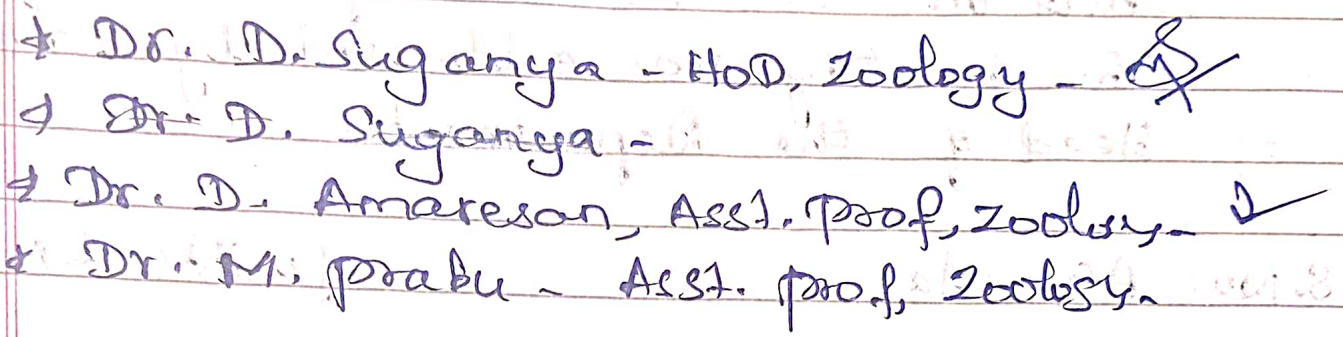 * Dr. D. Suganya - HOD, Zoology -
* Dr. D. Suganya -
* Dr. D. Amaresan, Asst. Prof, Zoology-
* Dr. M. Prabu - Asst. Prof, Zoology.